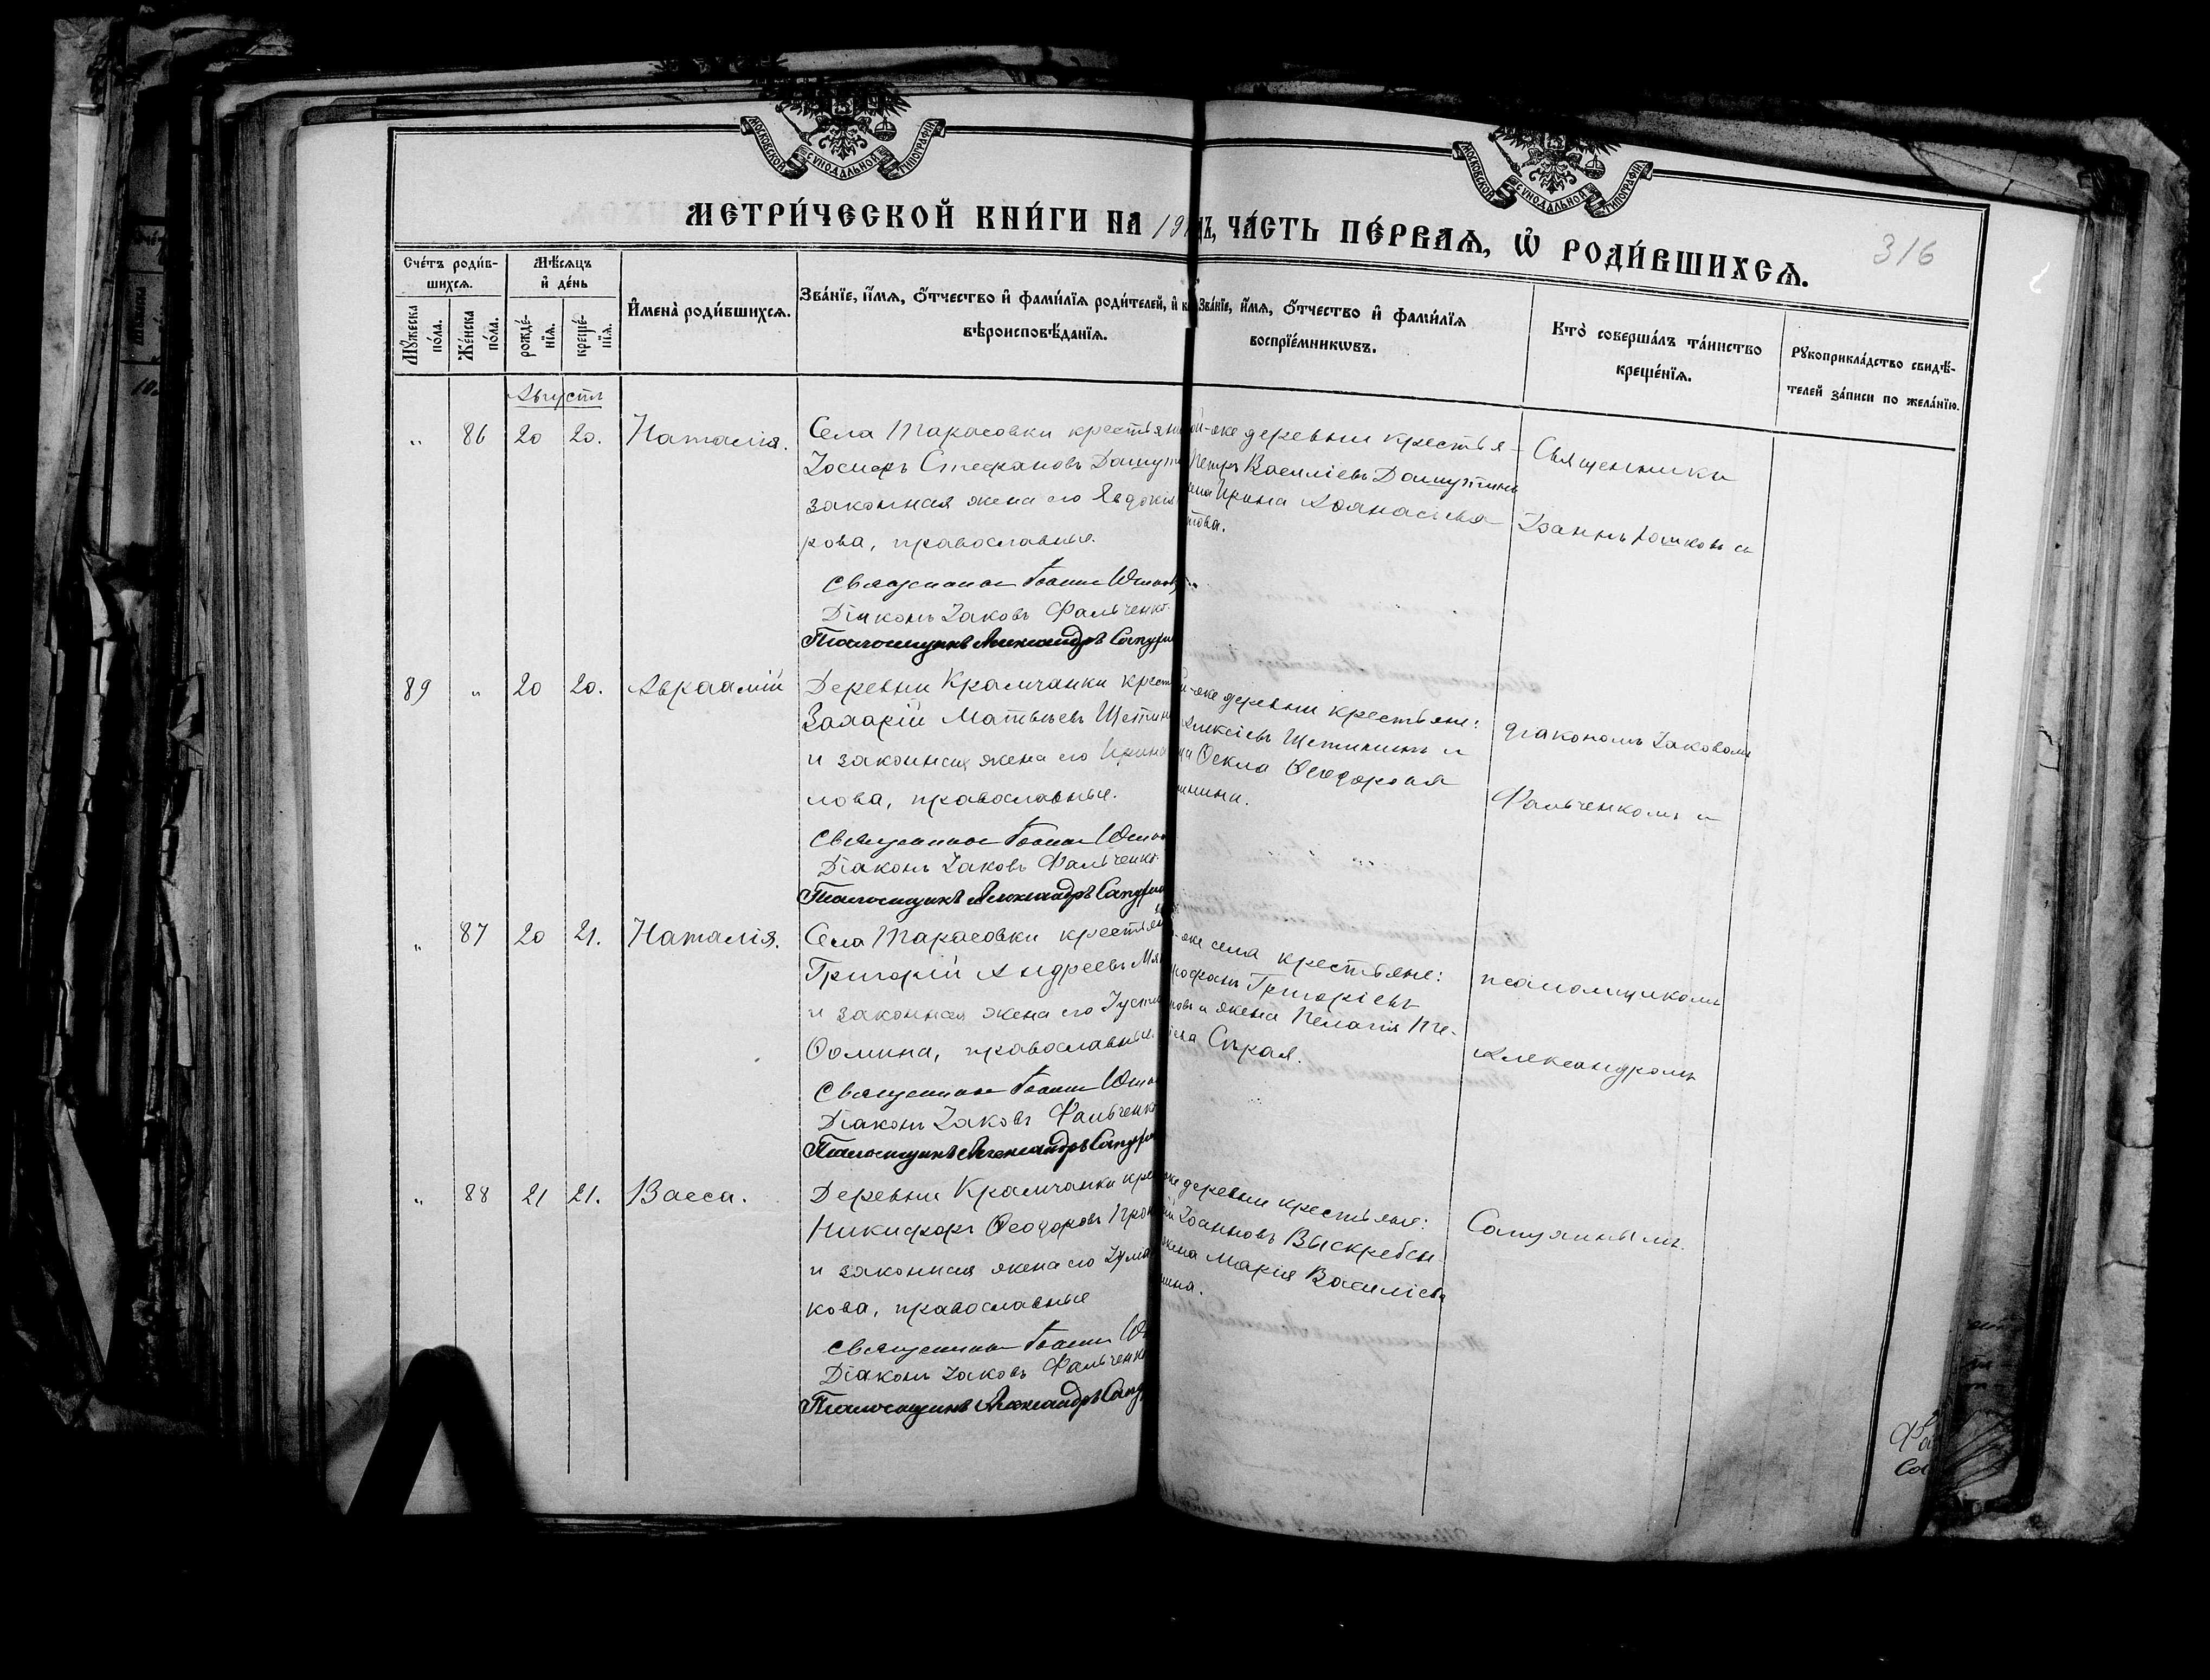 МОСКОВСКОЙ СѴНОДАЛЬНОЙ ТИПОГРАФІИ
МОСКОВСКОЙ СѴНОДАЛЬНОЙ ТИПОГРАФІИ
МЕТРИ́ЧЕСКОЙ КНИ́ГИ НА 19
ЧА́СТЬ ПЕ́РВАѦ, Ѽ РОДИ́ВШИХСѦ.
316
Сче́тъ роди́в-
шихсѧ.
Мѣ́сѧцъ
и҆ де́нь
Мꙋ́жеска по́ла.
Же́нска по́ла.
рожде́-
нїѧ.
креще́-
нїѧ.
И҆мена̀ роди́вшихсѧ.
Зва́нїе, и҆́мѧ, ѻ҆́тчество и҆ фами́лїѧ роди́телей, и҆
вѣроисповѣ́данїѧ.
Зва́нїе, и҆́мѧ, ѻ҆́тчество и҆ фами́лїѧ
воспрїе́мникѡвъ.
Кто̀ соверша́лъ та́инство
креще́нїѧ.
Рꙋкоприкла́дство свидѣ́-
телей за́писи по жела́нїю.
Августъ
„ 86 20 20. Наталія.
Села Тарасовки крестьяни
Іосифъ Стефановъ Дашут
законная жена его Евдокія
рова, православные.
Священникъ Іоаннъ
Діаконъ Іаковъ Фальченко
Псаломщикъ Александръ
же деревни крестья-
Петръ Василіевъ Дашутинъ
Ирина Аѳанасіева
това.
Священники
Іоаннъ
89 „ 20 20. Авраамій
Деревни Крамчанки крест
Захарій Матвѣевъ Щетин
и законная жена его Ирина
лова, православные.
Священникъ Іоаннъ
Діаконъ Іаковъ Фальченко
Псаломщикъ Александръ
же деревни крестьяне:
Алексіевъ Щетининъ и
Ѳекла Ѳеодорова
діакономъ Іаковомъ
Фальченкомъ и
„ 87 20 21. Наталія.
Села Тарасовки крестьян
Григорій Андреевъ
и законная жена его Іуст
Ѳомина, православные.
Священникъ Іоаннъ
Діаконъ Іаковъ Фальченко
Псаломщикъ Александръ
же села крестьяне:
Григоріевъ
и жена Пелагія
Сѣрая.
псаломщикомъ
Александромъ
„ 88 21 21. Васса.
Деревни Крамчанки кре
Никифоръ Ѳеодоровъ
и законная жена его
кова, православные
Священникъ Іоаннъ
Діаконъ Іаковъ Фальченко
Псаломщикъ Александръ
же деревни крестьяне:
Іоанновъ Выскребен
жена Марія Василіева
Сапухинымъ.